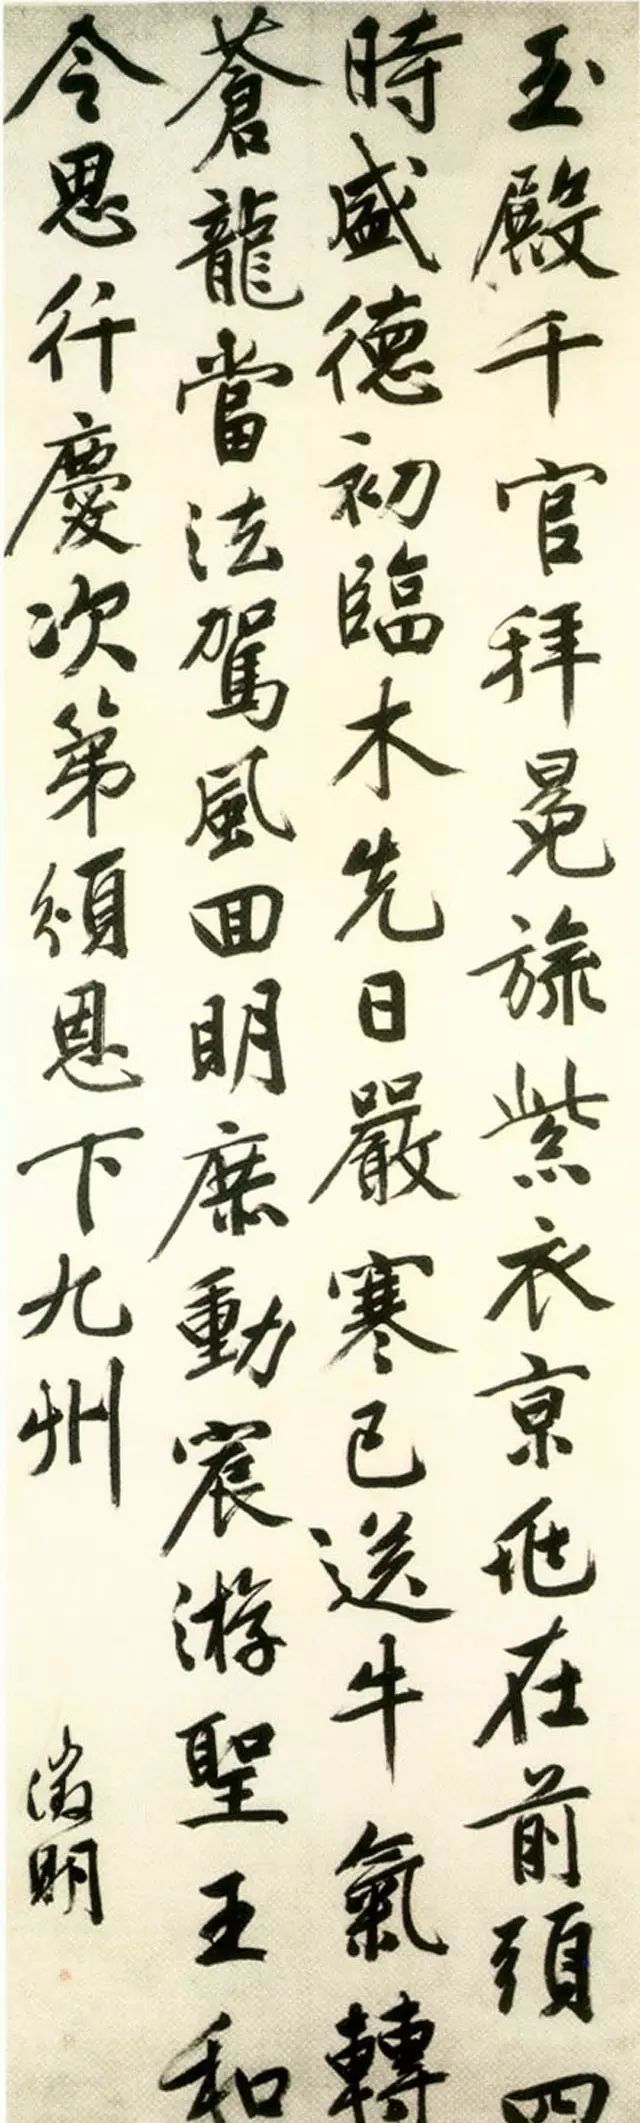 玉殿千官拜冕旒紫衣京兆在前頭四
時盛德初臨木先日嚴寒已送牛氣轉
蒼龍當法駕風回明庶動宸游聖王和
令思行慶次第頒恩下九州
徵明